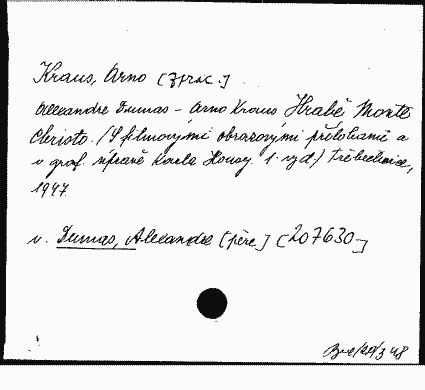 Kraus, Arno [zprac.]
Alexandre Dumas - Arno Kraus Hrabě Monte
Christo. /S filmovými obrazovými přílohami a
v graf. úpravě Karla 1. vyd./ Třebechovice,
1947.
v. Dumas, Alexandre [père] [207630]